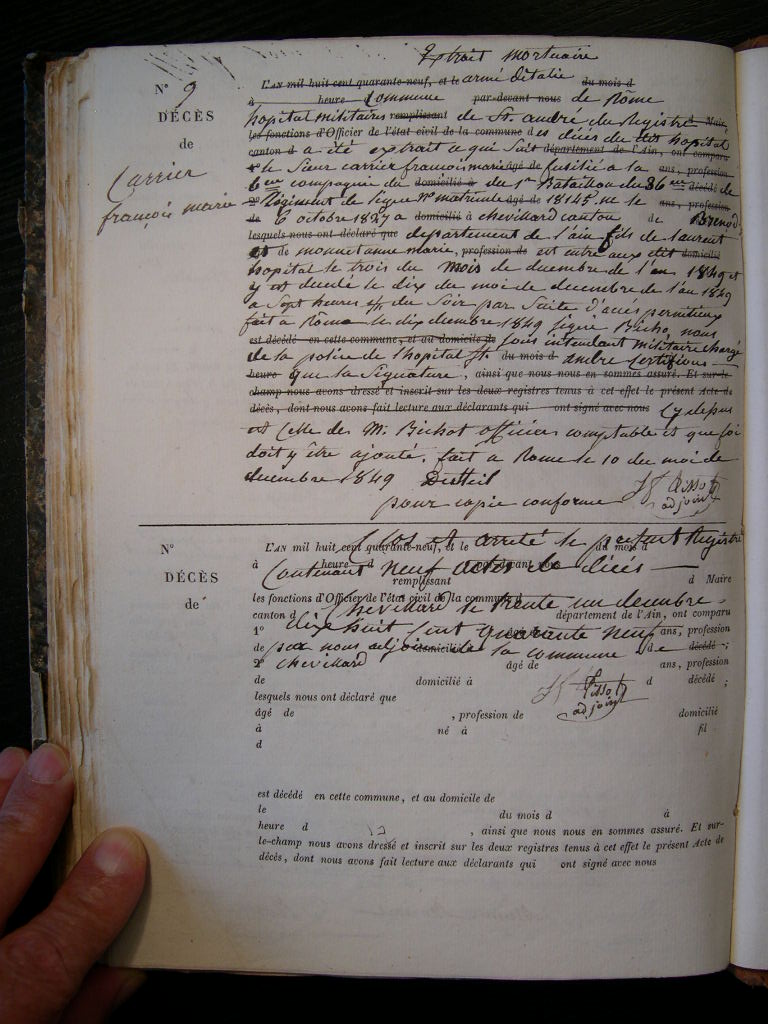 Extrait mortuaire
N° 9
DÉCÈS
de
Carrier
françois marie
L'AN mil huit cent quarante-neuf, et le armé ditalie du mois d
à heure Commune par-devant nous de Rome
hopital militaires remplissant de St. andre du Registre d Maire
les fonctions d'Officier de l'état civil de la commune d es décés du dit hopital
canton d a été extrait ce qui suit département de l'Ain, ont comparu
1° le Sieur carrier francois marie âgé de fusilié a la ans, profession
de 6em compagnie du domicilié à du 1er Bataillon du 36me décédé de
2° Régiment de ligne n° matricule âgé de 18145 né le ans, profession
de 6 octobre 1827 a domicilié à chevillard canton de Brenod
lesquels nous ont déclaré que departement de l'ain fils de laurent
et de monnet anne marie, profession de est entré aux dit domicilié
hopital le trois du mois de decembre de l'an 1849 et
y est decedé le dix du moi de decembre de l'an 1849
a Sept heures du Soir par Suite d'accés pernitieux
fait a Rome le dix decembre 1849 signé Bichot, nous
est décédé en cette commune, et au domicile de sous intendant militaire chargé
de la police de l'hopital St. du mois d andre certifions
heure que la Signature, ainsi que nous nous en sommes assuré. Et sur-le-
champ nous avons dressé et inscrit sur les deux registres tenus à cet effet le présent Acte de
décès, dont nous avons fait lecture aux déclarants qui ont signé avec nous Cy depus
est Celle de M. Bichot officier comptable et que foi
doit y être ajouté. fait a Rome le 10 du moi de
decembre 1849
pour copie conforme
Tissot
adjoint
N°
DÉCÈS
de
L'AN mil huit cent quarante-neuf, et le du mois d
Clos et arrété le present Registre
à heure d par-devant nous
Contenant neuf actes de décés
remplissant d Maire
les fonctions d'Officier de l'état civil de la commune d
Chevillard le trente un decembre
canton d département de l'Ain, ont comparu
1° âgé de ans, profession
dix huit Cent quarante neuf
de domicilié à d décédé ;
par nous adjoint de la commune de
2° âgé de ans, profession
chevillard
de domicilié à d décédé ;
Tissot
adjoint
lesquels nous ont déclaré que
âgé de , profession de domicilié
à né à fil
d
est décédé en cette commune, et au domicile de
le du mois d à
heure d , ainsi que nous nous en sommes assuré. Et sur-
le-champ nous avons dressé et inscrit sur les deux registres tenus à cet effet le présent Acte de
décès, dont nous avons fait lecture aux déclarants qui ont signé avec nous